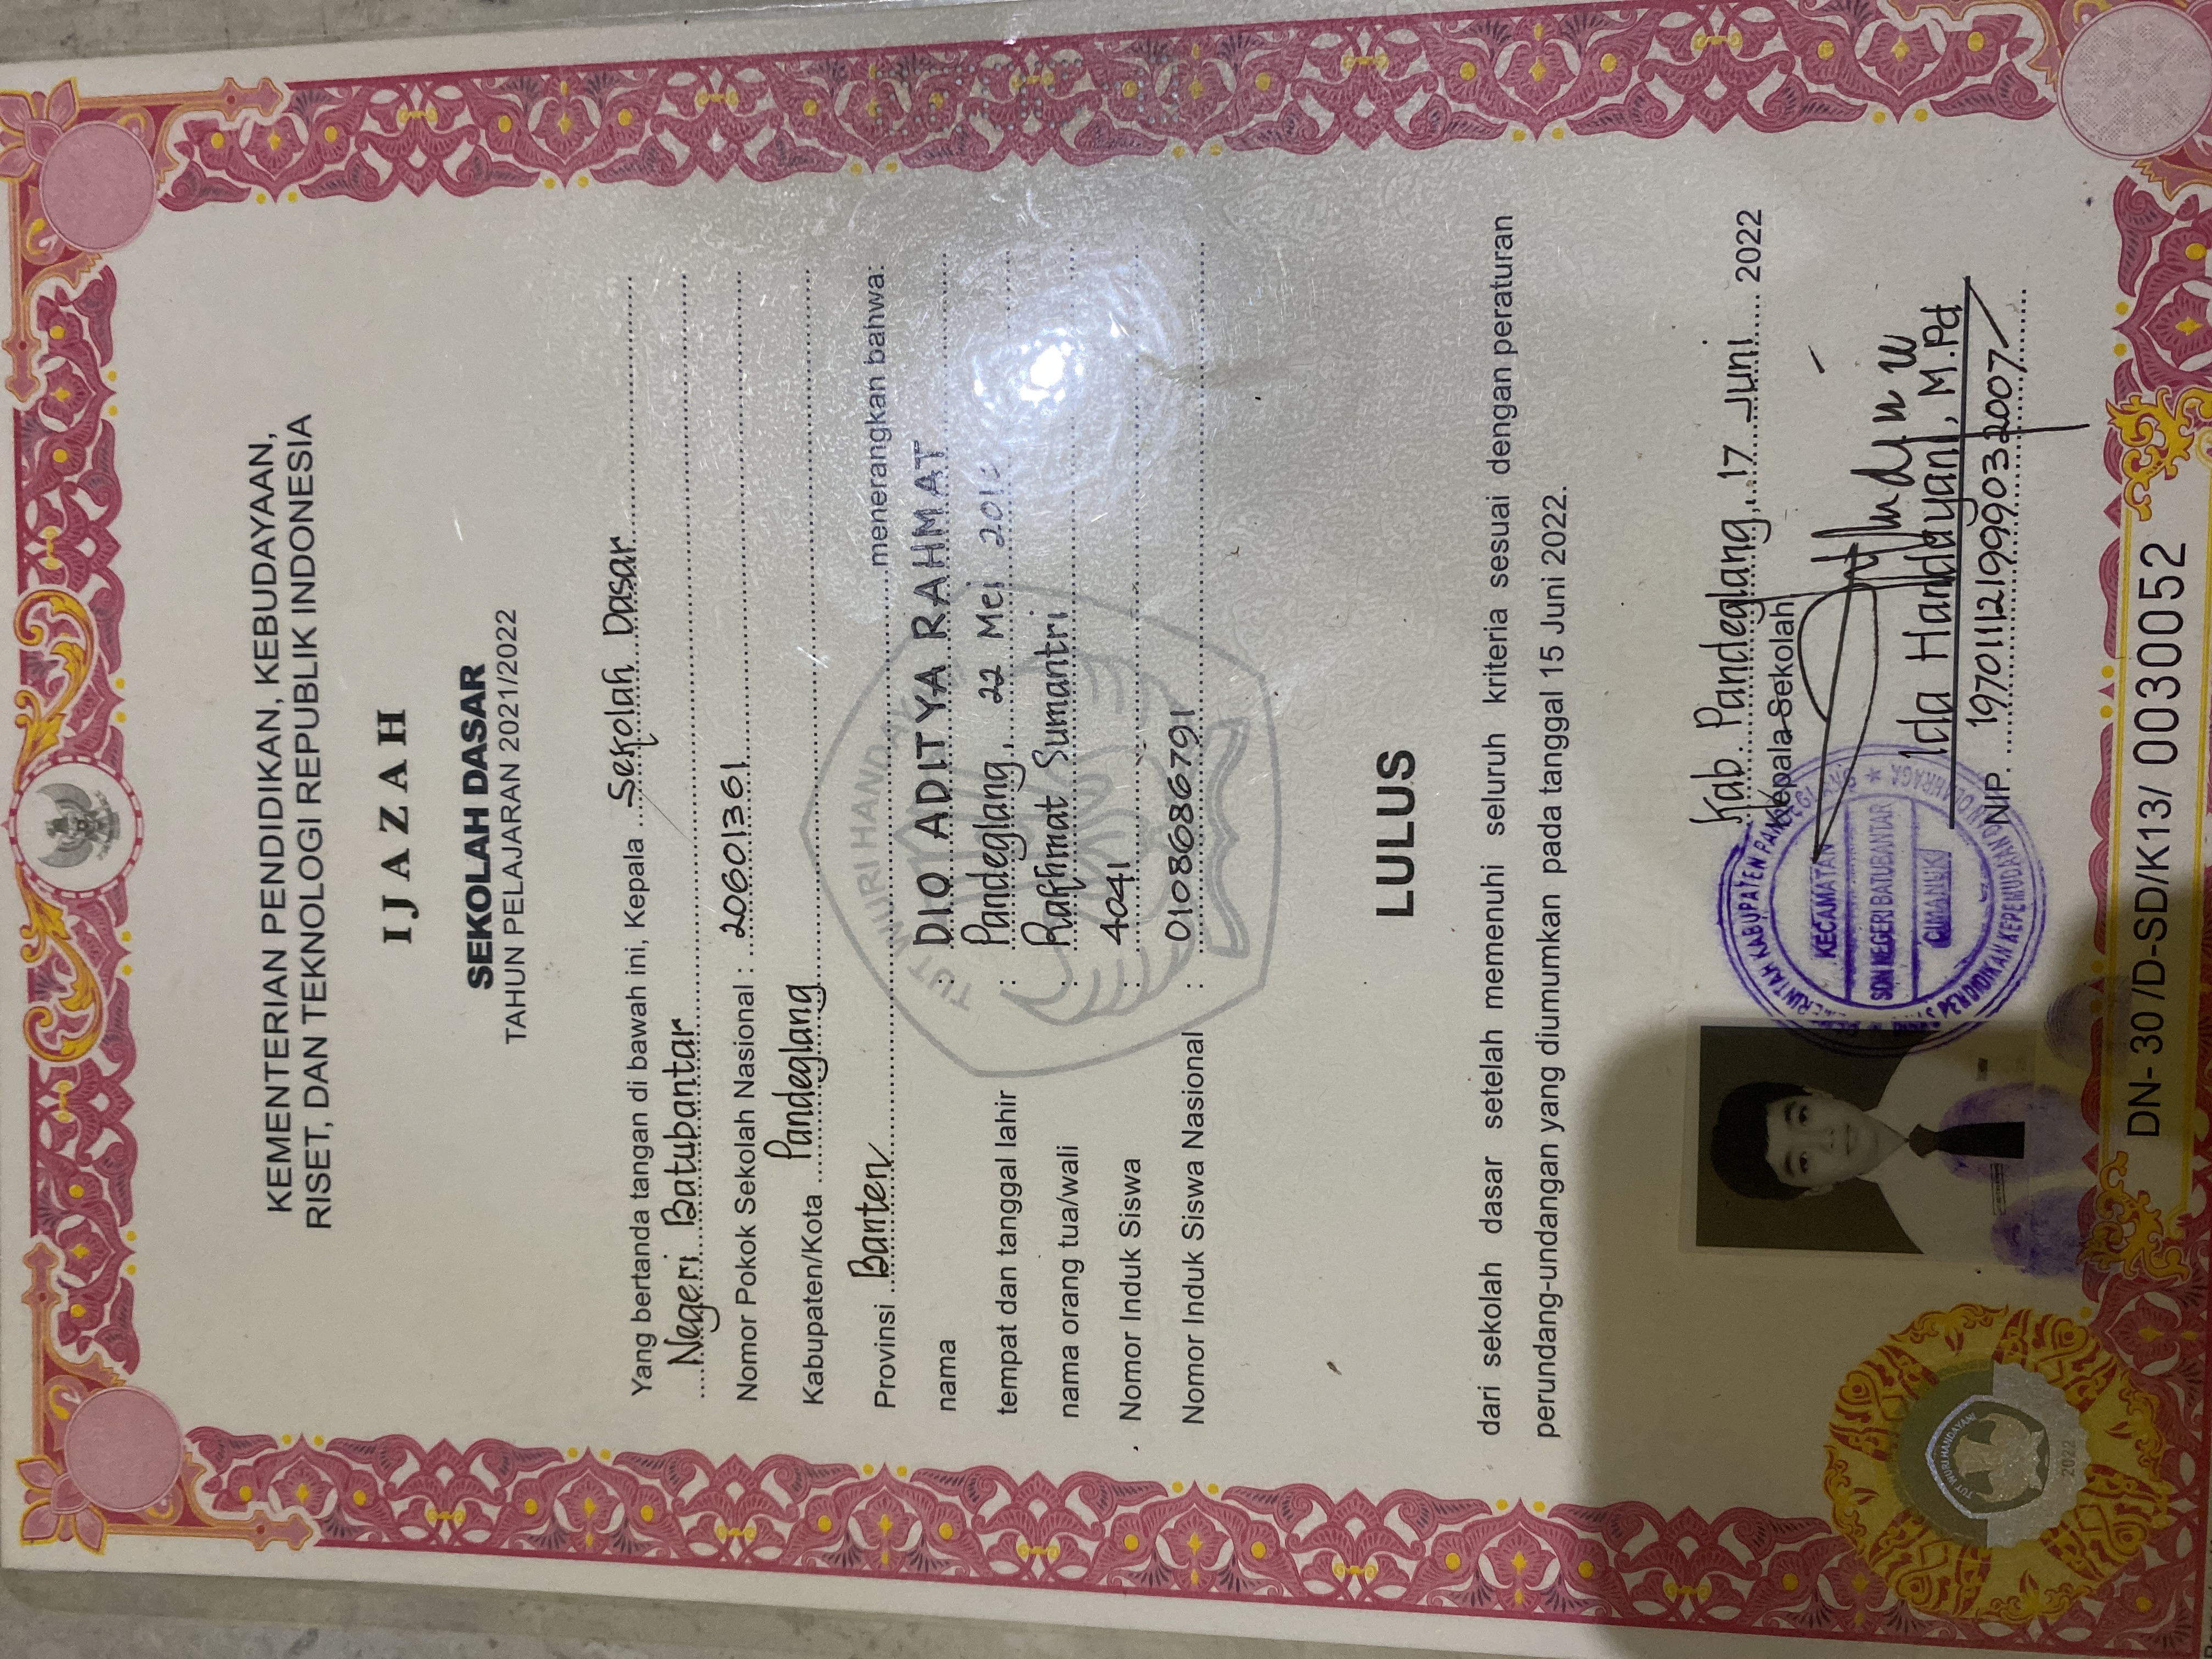 KEMENTERIAN PENDIDIKAN, KEBUDAYAAN,
RISET, DAN TEKNOLOGI REPUBLIK INDONESIA
IJAZAH
SEKOLAH DASAR
TAHUN PELAJARAN 2021/2022
Yang bertanda tangan di bawah ini, Kepala Sekolah Dasar
Negeri Batubantar
Nomor Pokok Sekolah Nasional : 20601361
Kabupaten/Kota Pandeglang
Provinsi Banten menerangkan bahwa:
TUT WURI HANDAYANI
nama : DIO ADITYA RAHMAT
tempat dan tanggal lahir : Pandeglang, 22 Mei
nama orang tua/wali : Rakhmat Sumantri
Nomor Induk Siswa : 4041
Nomor Induk Siswa Nasional : 0108686791
LULUS
dari sekolah dasar setelah memenuhi seluruh kriteria sesuai dengan peraturan
perundang-undangan yang diumumkan pada tanggal 15 Juni 2022.
Kab. Pandeglang, 17 Juni 2022
Kepala Sekolah
PEMERINTAH KABUPATEN PANDEGLANG
KECAMATAN
SDN NEGERI BATUBANTAR
CIMANUK
PENDIDIKAN KEPEMUDAAN DAN OLAHRAGA
Ida Handayani, M.Pd
NIP. 197011121999032007
TUT WURI HANDAYANI
2022
DN- 30 /D-SD/K13/ 0030052